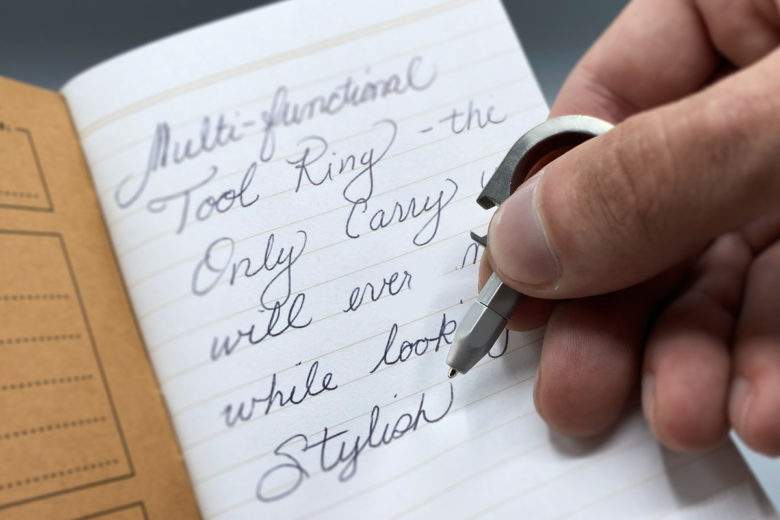 Multi-functional
Tool Ring - the
Only Carry
will ever
while
Stylish